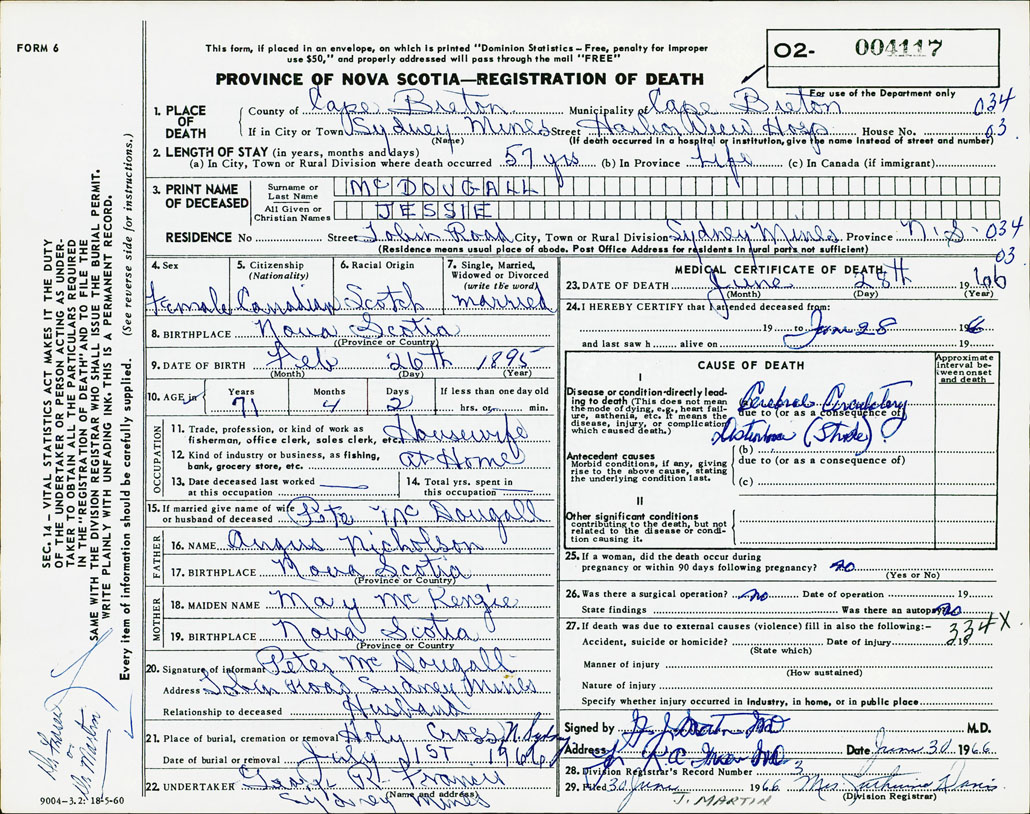 FORM 6
This form, if placed in an envelope, on which is printed "Dominion Statistics – Free, penalty for improper
use $50," and properly addressed will pass through the mail "FREE"
O2- 004117
PROVINCE OF NOVA SCOTIA—REGISTRATION OF DEATH
For use of the Department only
1. PLACE OF DEATH
County of Cape Breton Municipality of Cape Breton 034
If in City or Town Sydney Mines Street Harbor View Hosp House No. 03
(Name) (If death occurred in a hospital or institution, give the name instead of street and number)
2. LENGTH OF STAY (in years, months and days)
(a) In City, Town or Rural Division where death occurred 57 yrs (b) In Province Life (c) In Canada (if immigrant)
3. PRINT NAME OF DECEASED
Surname or Last Name McDOUGALL
All Given or Christian Names JESSIE
RESIDENCE No Street Tobin Road City, Town or Rural Division Sydney Mines Province N.S. 034
(Residence means usual place of abode. Post Office Address for residents in rural parts not sufficient)
03
4. Sex
Female
5. Citizenship
(Nationality)
Canadian
6. Racial Origin
Scotch
7. Single, Married,
Widowed or Divorced
(write the word)
married
8. BIRTHPLACE Nova Scotia
(Province or Country)
9. DATE OF BIRTH Feb 26th 1895
(Month) (Day) (Year)
10. AGE in Years Months Days If less than one day old
71 4 2 hrs. or min.
OCCUPATION
11. Trade, profession, or kind of work as
fisherman, office clerk, sales clerk, etc. Housewife
12. Kind of industry or business, as fishing,
bank, grocery store, etc. at Home
13. Date deceased last worked
at this occupation
14. Total yrs. spent in
this occupation
15. If married give name of wife
or husband of deceased Pete McDougall
FATHER
16. NAME Angus Nicholson
17. BIRTHPLACE Nova Scotia
(Province or Country)
MOTHER
18. MAIDEN NAME May McKenzie
19. BIRTHPLACE Nova Scotia
(Province or Country)
20. Signature of informant Peter McDougall
Address Tobin Road Sydney Mines
Relationship to deceased Husband
21. Place of burial, cremation or removal Holy Cross N. Sydney
Date of burial or removal July 1st 1966
22. UNDERTAKER
(Name and address)
Sydney Mines
MEDICAL CERTIFICATE OF DEATH
23. DATE OF DEATH June 28th 1966
(Month) (Day) (Year)
24. I HEREBY CERTIFY that I attended deceased from:
19 to June 28 1966
and last saw h alive on 19
CAUSE OF DEATH
Approximate
interval between onset
and death
I
Disease or condition directly leading to death (This does not mean
the mode of dying, e.g., heart failure, asthenia, etc. It means the
disease, injury, or complication
which caused death.)
Cerebral Circulatory
due to (or as a consequence of)
(Stroke)
(b)
Antecedent causes
Morbid conditions, if any, giving
rise to the above cause, stating
the underlying condition last.
due to (or as a consequence of)
(c)
II
Other significant conditions
contributing to the death, but not
related to the disease or condition causing it.
25. If a woman, did the death occur during
pregnancy or within 90 days following pregnancy? no
(Yes or No)
26. Was there a surgical operation? no Date of operation 19
State findings Was there an autopsy no
27. If death was due to external causes (violence) fill in also the following:–
334X
Accident, suicide or homicide? Date of injury 19
(State which)
Manner of injury
(How sustained)
Nature of injury
Specify whether injury occurred in Industry, in home, or in public place
Signed by M.D.
Address Date June 30 1966
28. Division Registrar's Record Number 3
29. Filed 30 June 1966
J. MARTIN (Division Registrar)
SEC. 14 – VITAL STATISTICS ACT MAKES IT THE DUTY
OF THE UNDERTAKER OR PERSON ACTING AS UNDERTAKER TO OBTAIN ALL THE PARTICULARS REQUIRED
IN THE "REGISTRATION OF DEATH" AND TO FILE THE
SAME WITH THE DIVISION REGISTRAR WHO SHALL ISSUE THE BURIAL PERMIT.
WRITE PLAINLY WITH UNFADING INK. THIS IS A PERMANENT RECORD.
Every item of information should be carefully supplied. (See reverse side for instructions.)
or
Dr Martin
9004–3.2: 18-5-60